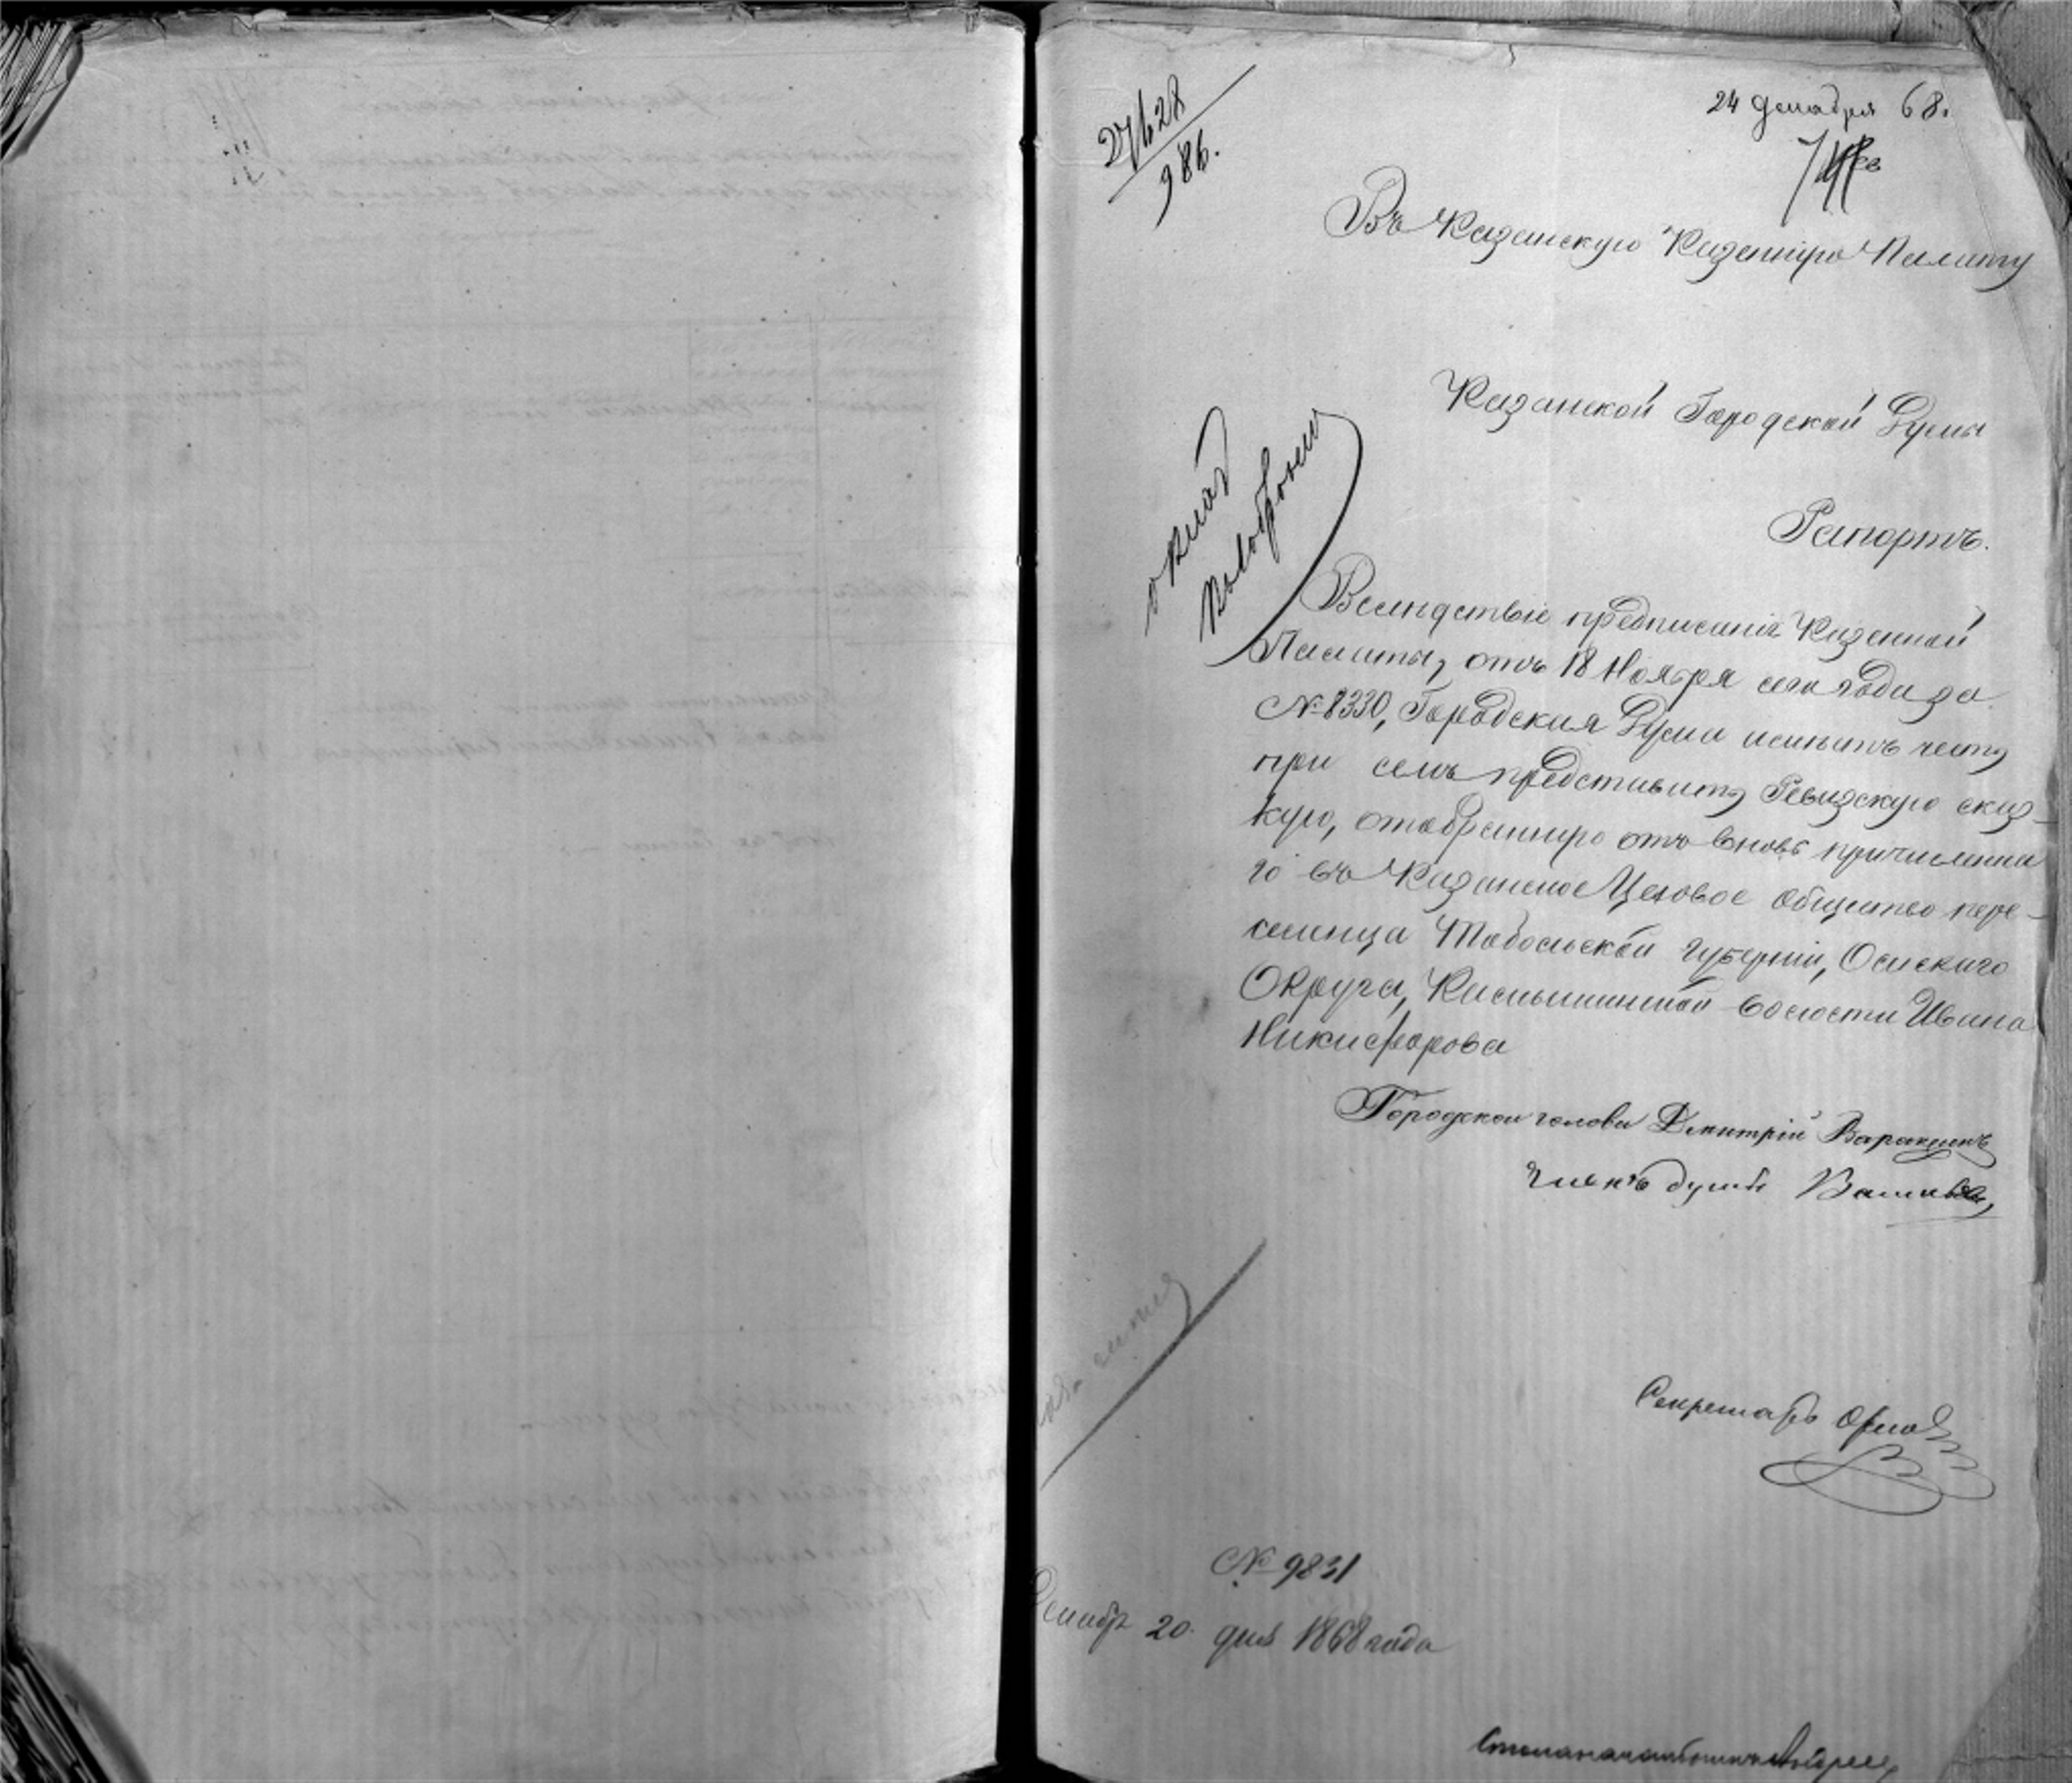 27628
986.
24 декабря 68.
Въ Казанскую Казенную Палату
Казанской Городской Думы
Рапортъ.
оклад
Вслѣдствіе предписанія Казенной
Палаты, отъ 18 Ноября сего года за
№ 8330, Городская Дума имѣетъ честь
при семъ представить Ревизскую сказ-
ку, отобранную отъ вновь причисленна
го въ Казанское Цеховое общество пере-
селенца Тобольской губерніи, Омскаго
Округа, Кисілевской волости Ивана
Никифорова
Городской голова Дмитрій Вараксинъ
Членъ думы
Секретарь Орлов
№ 9831
Декабр 20 дня 1868 года